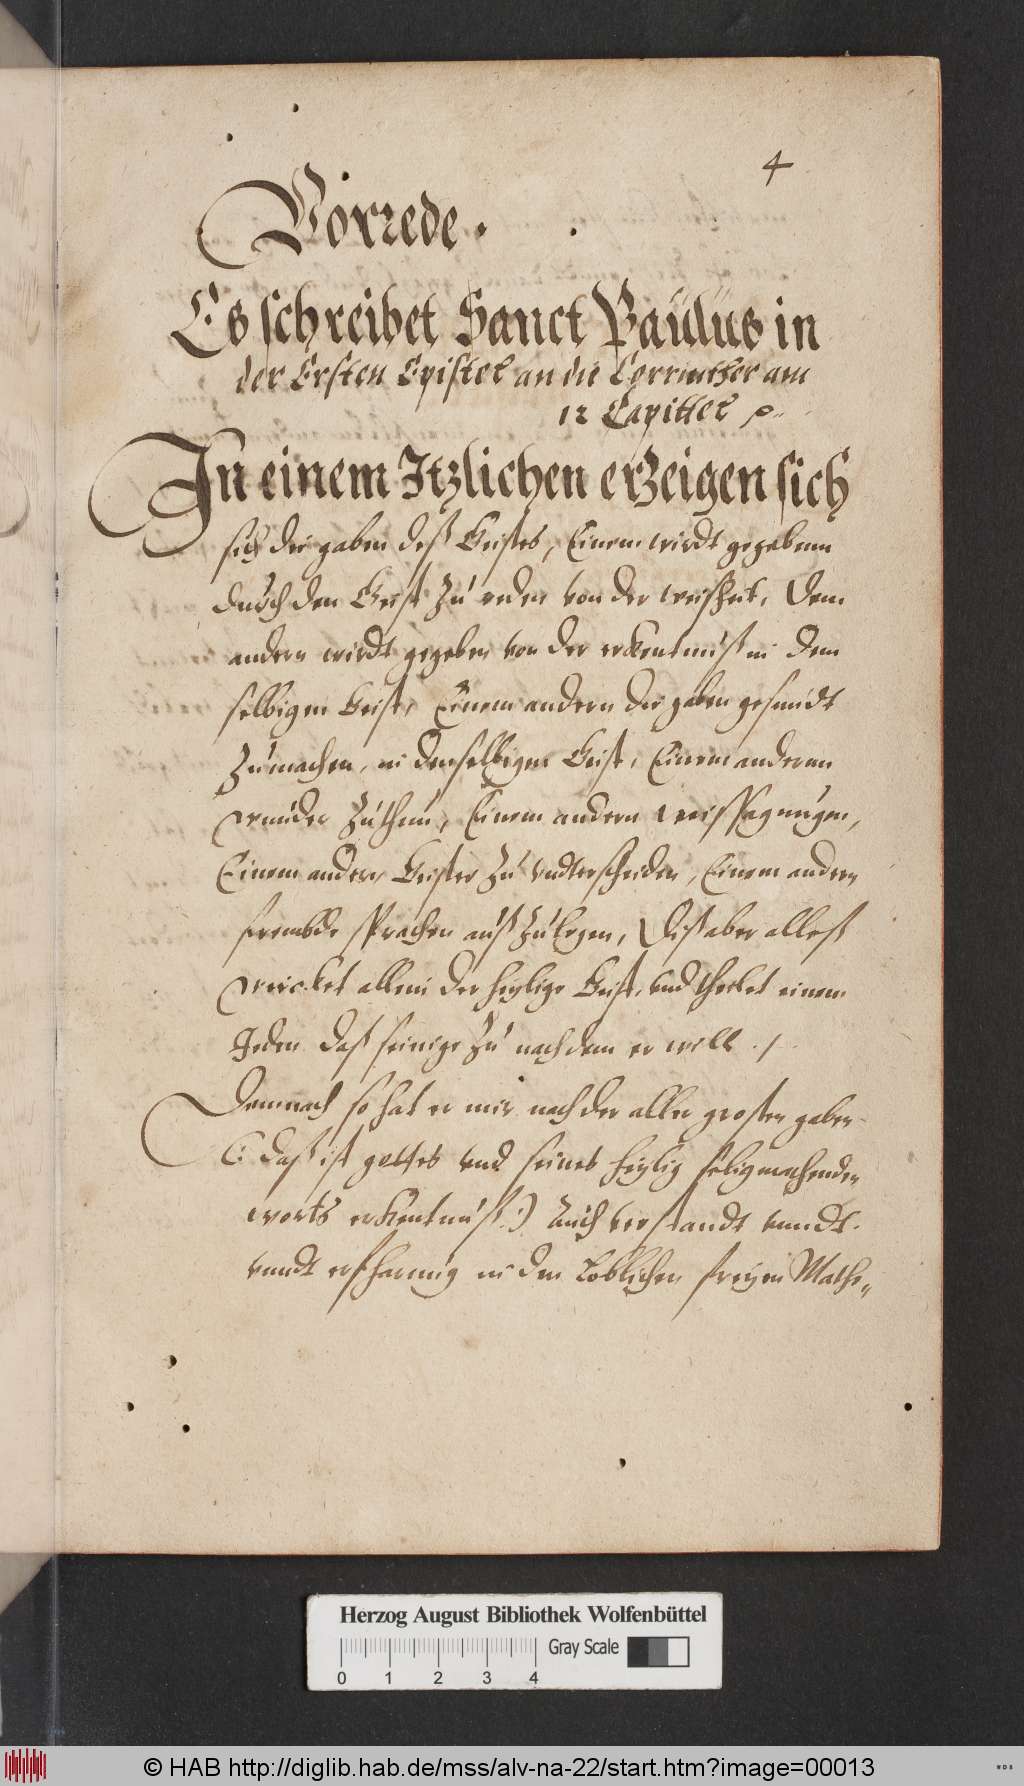 4
Vorrede.
Es schreibet Sanct Paulus in
der Ersten Epistel an die Corrinther am
12 Capittel
In einem Itzlichen erzeigen sich
sich die gaben deß Geistes, Einem wirdt gegebenn
durch den Geist Zu reden von der weißheit, Dem
andern wirdt gegeben von der erkentnuß in dem
selbigen Geist, Einem andern die gaben gesundt
Zumachen, in demselbigen Geist, Einem andernn
wunder Zuthun, Einem andern weissagungen,
Einem andern Geister Zu undterscheiden, Einem andern
frembde sprachen auß Zulegen, Diß aber alleß
wircket allein der heylige Geist, und theilet einem
Jeden daß seinige Zu nach dem er will ./.
Demnach so hat er mir nach der aller grosten gaben
(: daß ist gottes und seines heylig seligmachenden
worts erkentnuß :) Auch verstandt unndt
unndt erfharung in den Loblichen freyen Mathe„
Herzog August Bibliothek Wolfenbüttel
Gray Scale
0 1 2 3 4
© HAB http://diglib.hab.de/mss/alv-na-22/start.htm?image=00013